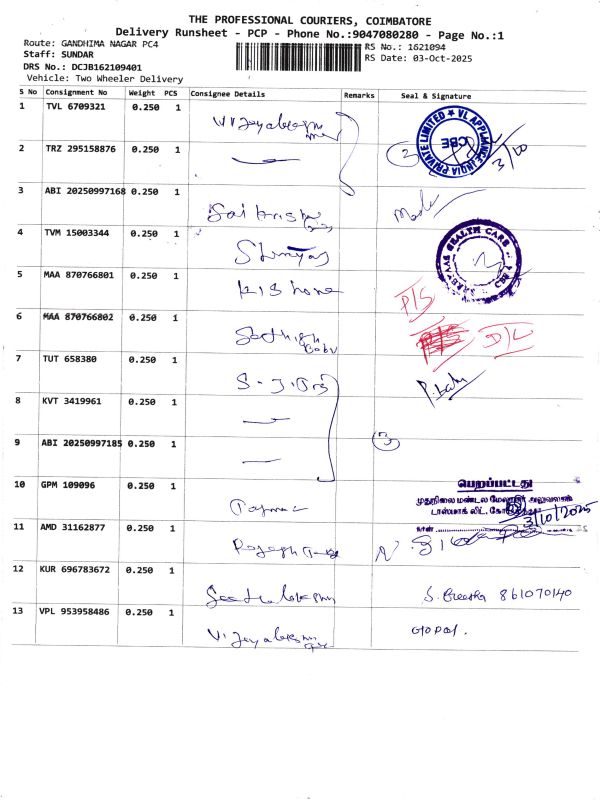 THE PROFESSIONAL COURIERS, COIMBATORE
Delivery Runsheet - PCP - Phone No.:9047080280 - Page No.:1
Route: GANDHIMA NAGAR PC4
RS No.: 1621094
Staff: SUNDAR
RS Date: 03-Oct-2025
DRS No.: DCJB162109401
Vehicle: Two Wheeler Delivery
S No Consignment No Weight PCS Consignee Details Remarks Seal & Signature
1 TVL 6709321 0.250 1
VL APPLIANCE INDIA PRIVATE LIMITED ★ CBE
3/10
2 TRZ 295158876 0.250 1 2
3 ABI 20250997168 0.250 1
4 TVM 15003344 0.250 1
HEALTH CARE
5 MAA 870766801 0.250 1 Kishore
P/S
6 MAA 870766802 0.250 1 Sathish Babu
D/L
7 TUT 658380 0.250 1
P. babu
8 KVT 3419961 0.250 1
9 ABI 20250997185 0.250 1
10 GPM 109096 0.250 1
பெறப்பட்டது
முதுநிலை மண்டல மேலாளர் அலுவலகம்
டாஸ்மாக் லிட்.
நாள்
3/10/2025
11 AMD 31162877 0.250 1
12 KUR 696783672 0.250 1
S. Preetha 861070140
13 VPL 953958486 0.250 1
Gopal.